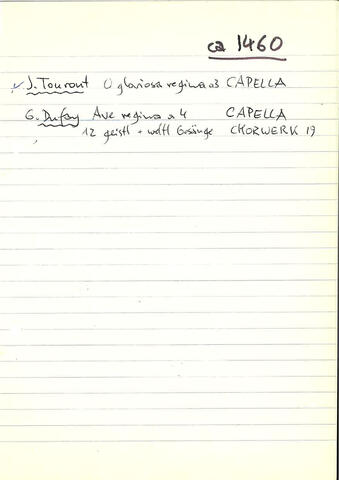 ca 1460
J. Tourout O gloriosa regina a3 CAPELLA
G. Dufay Ave regina a 4 CAPELLA
12 geistl + weltl Gesänge CHORWERK 19